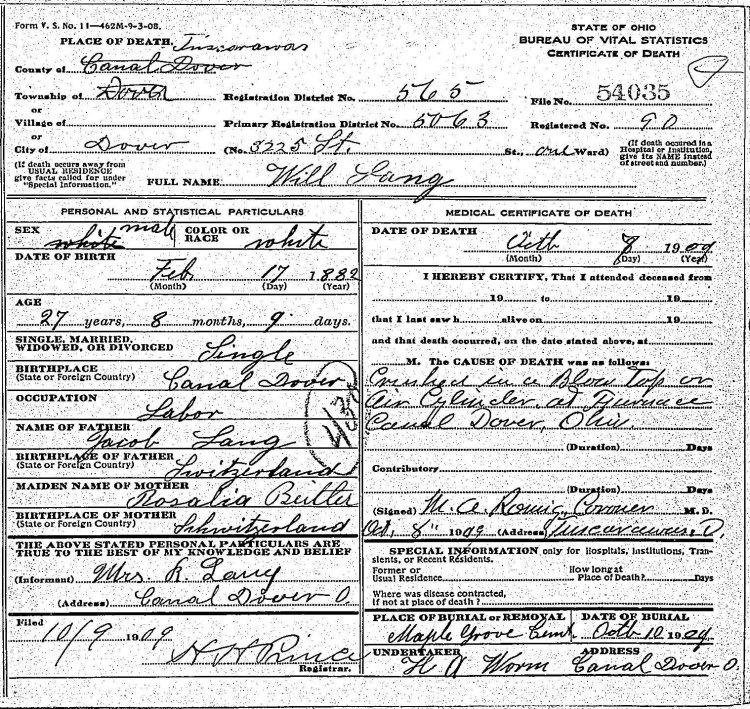 Form V. S. No. 11—462M-9-3-08.
STATE OF OHIO
BUREAU OF VITAL STATISTICS
CERTIFICATE OF DEATH
PLACE OF DEATH, Tuscarawas
County of Canal Dover
Township of Dover Registration District No. 565 File No. 54035
or
Village of Primary Registration District No. 5063 Registered No. 90
or
City of Dover (No. 3225 St. St., Ward)
(If death occurred in a Hospital or Institution, give its NAME instead of street and number.)
(If death occurs away from USUAL RESIDENCE give facts called for under "Special Information.")
FULL NAME Will Lang
PERSONAL AND STATISTICAL PARTICULARS
SEX white male COLOR OR RACE white
DATE OF BIRTH
Feb 17 1882
(Month) (Day) (Year)
AGE
27 years, 8 months, 9 days.
SINGLE, MARRIED, WIDOWED, OR DIVORCED Single
BIRTHPLACE (State or Foreign Country) Canal Dover
OCCUPATION Labor
NAME OF FATHER Jacob Lang
BIRTHPLACE OF FATHER (State or Foreign Country) Switzerland
MAIDEN NAME OF MOTHER Rosalia Beitler
BIRTHPLACE OF MOTHER (State or Foreign Country) Schwitzerland
THE ABOVE STATED PERSONAL PARTICULARS ARE
TRUE TO THE BEST OF MY KNOWLEDGE AND BELIEF
(Informant) Mrs R. Lang
(Address) Canal Dover O.
Filed
10/9 1909
H H Prince
Registrar.
MEDICAL CERTIFICATE OF DEATH
DATE OF DEATH
Octb 8 1909
(Month) (Day) (Year)
I HEREBY CERTIFY, That I attended deceased from
19 to 19
that I last saw h alive on 19
and that death occurred, on the date stated above, at
M. The CAUSE OF DEATH was as follows:
Crushed in a Blow Top or
Air Cylinder, at Furnace
Canal Dover, Ohio.
(Duration) Days
Contributory
(Duration) Days
(Signed) M. A. Romig, Coroner M. D.
Oct, 8" 1909 (Address) Tuscarawas, O.
SPECIAL INFORMATION only for Hospitals, Institutions, Transients, or Recent Residents.
Former or Usual Residence How long at Place of Death? Days
Where was disease contracted,
if not at place of death?
PLACE OF BURIAL or REMOVAL DATE OF BURIAL
Maple Grove Cemt Octb 10 1909
UNDERTAKER ADDRESS
H A Worm Canal Dover O